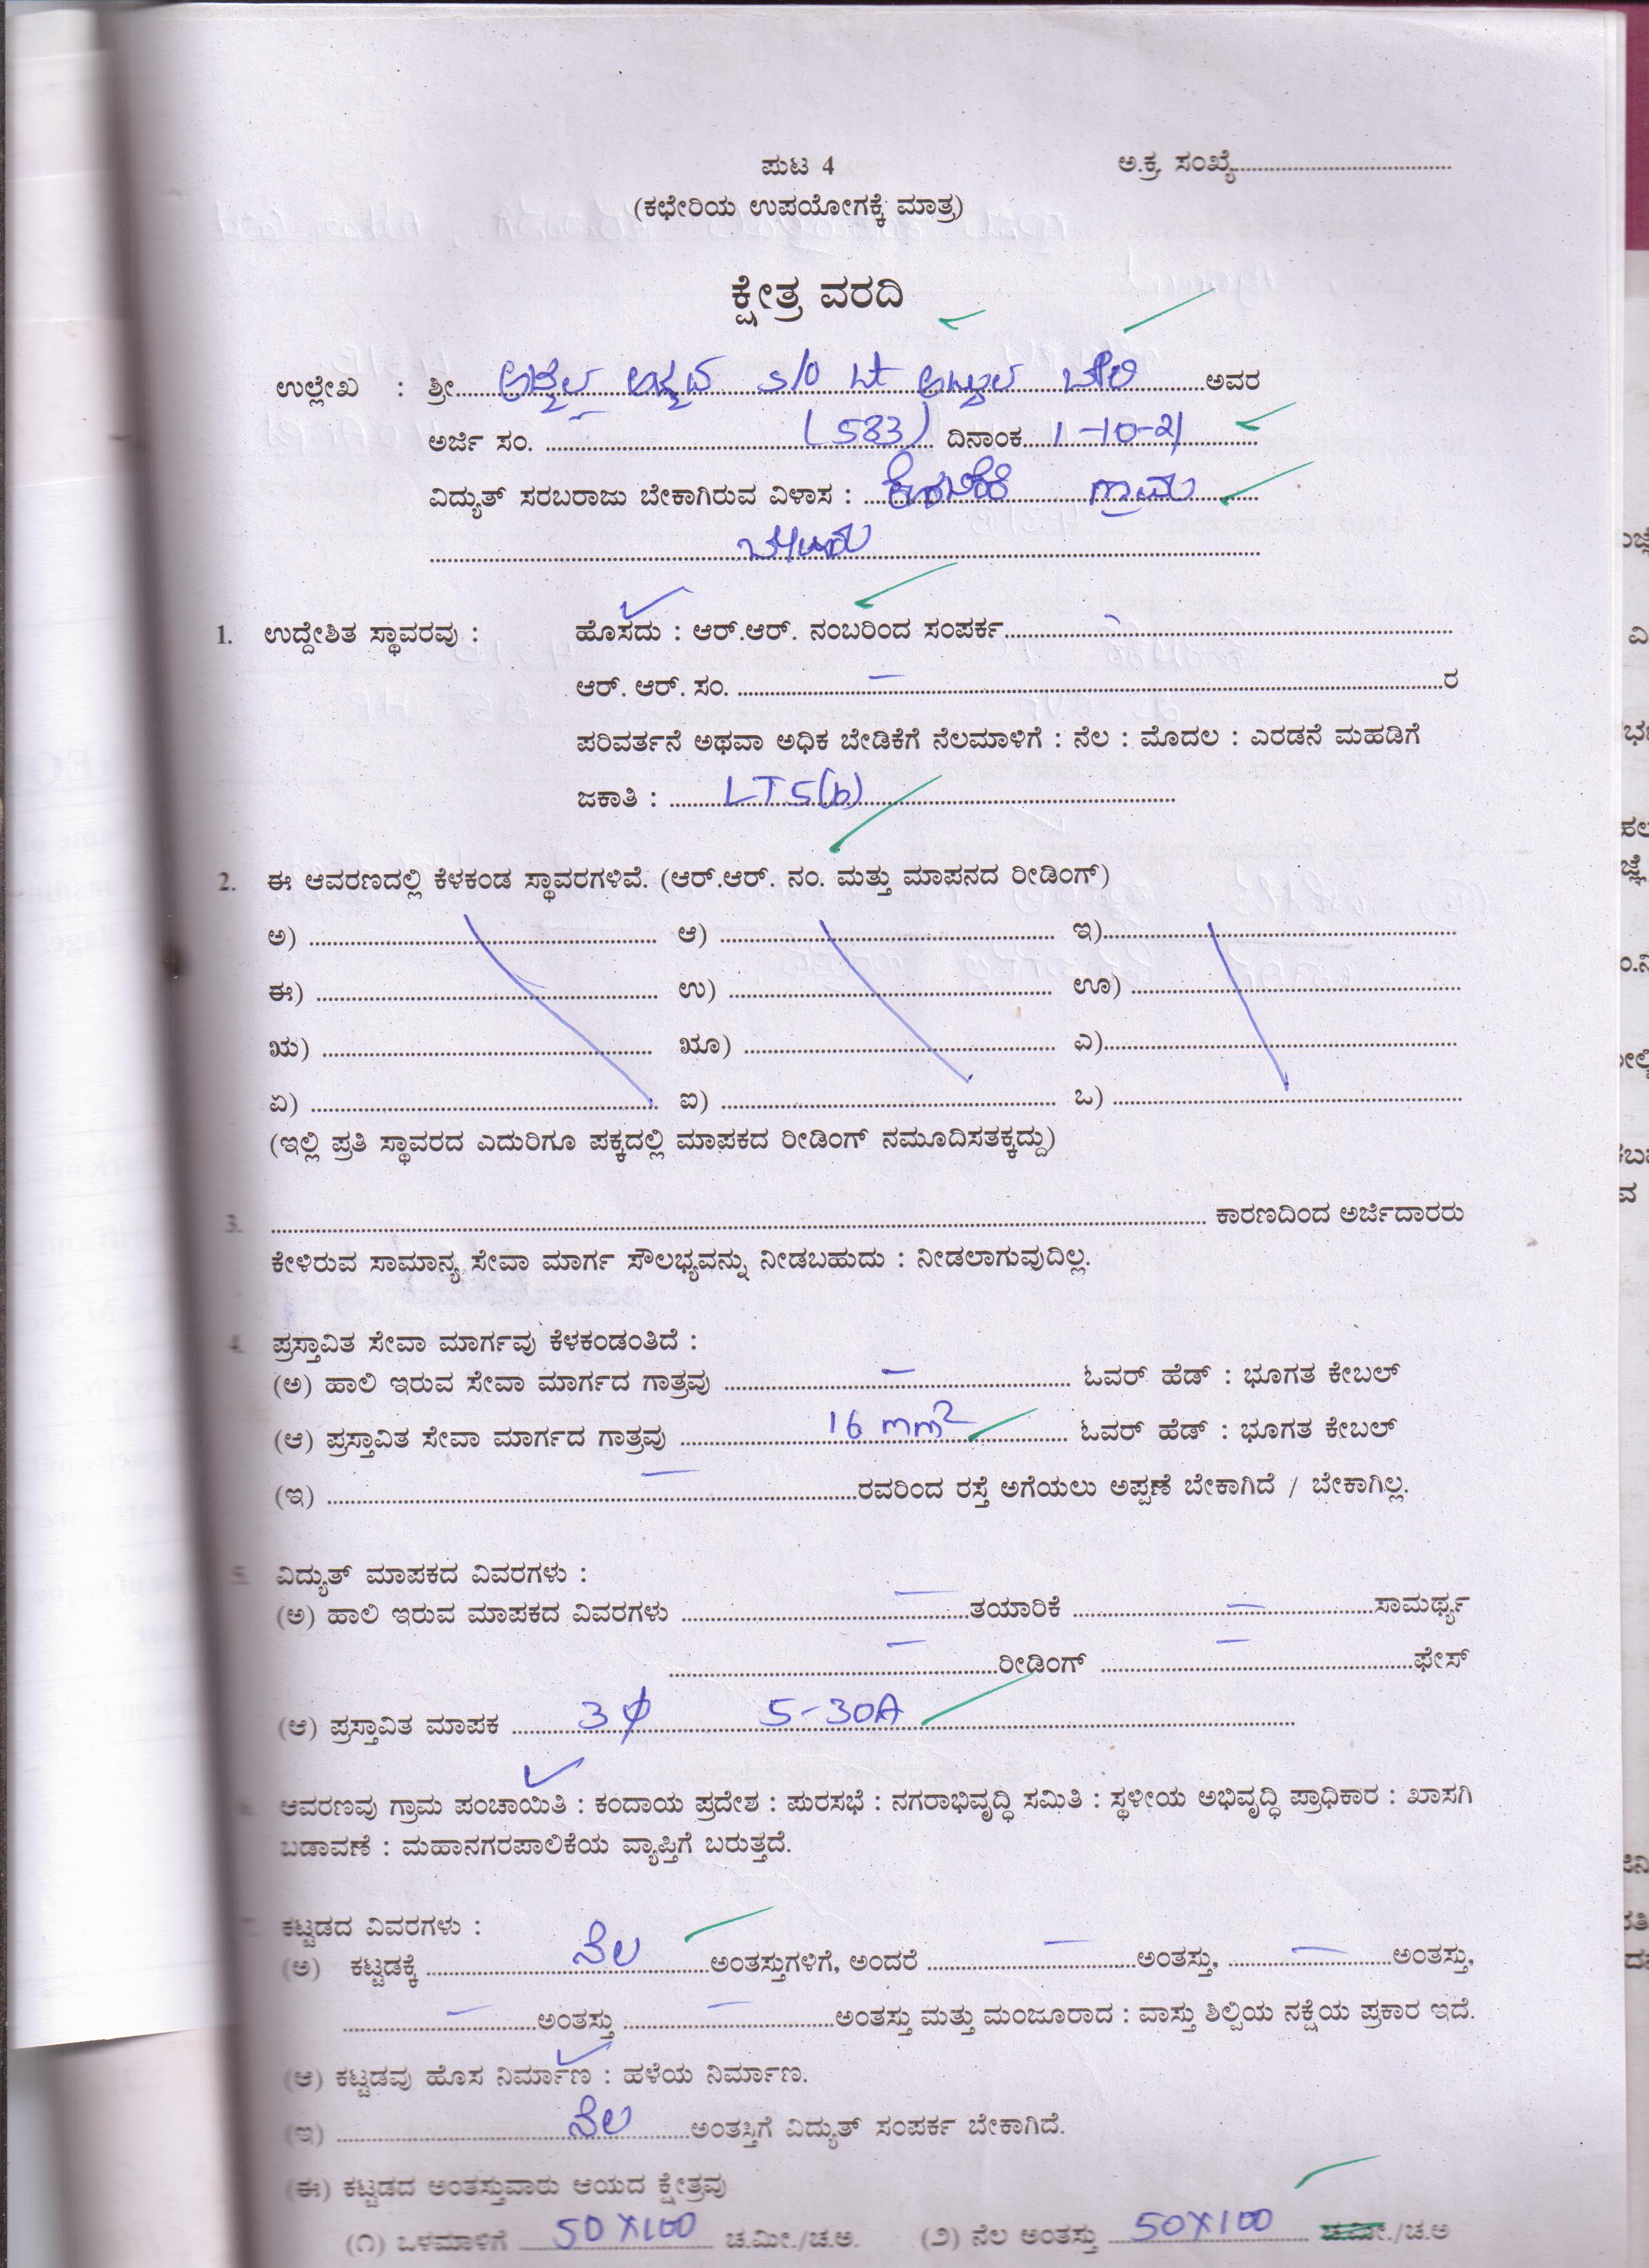 ಪುಟ 4
ಅ.ಕ್ರ. ಸಂಖ್ಯೆ
(ಕಛೇರಿಯ ಉಪಯೋಗಕ್ಕೆ ಮಾತ್ರ)
ಕ್ಷೇತ್ರ ವರದಿ
ಉಲ್ಲೇಖ : ಶ್ರೀ s/o Lt ಅವರ
ಅರ್ಜಿ ಸಂ. (583) ದಿನಾಂಕ 1-10-21
ವಿದ್ಯುತ್ ಸರಬರಾಜು ಬೇಕಾಗಿರುವ ವಿಳಾಸ : ಗ್ರಾಮ
1. ಉದ್ದೇಶಿತ ಸ್ಥಾವರವು : ಹೊಸದು : ಆರ್.ಆರ್. ನಂಬರಿಂದ ಸಂಪರ್ಕ
ಆರ್. ಆರ್. ಸಂ. – ರ
ಪರಿವರ್ತನೆ ಅಥವಾ ಅಧಿಕ ಬೇಡಿಕೆಗೆ ನೆಲಮಾಳಿಗೆ : ನೆಲ : ಮೊದಲ : ಎರಡನೆ ಮಹಡಿಗೆ
ಜಕಾತಿ : LT 5(b)
2. ಈ ಆವರಣದಲ್ಲಿ ಕೆಳಕಂಡ ಸ್ಥಾವರಗಳಿವೆ. (ಆರ್.ಆರ್. ನಂ. ಮತ್ತು ಮಾಪನದ ರೀಡಿಂಗ್)
ಅ) ಆ) ಇ)
ಈ) ಉ) ಊ)
ಋ) ೠ) ಎ)
ಏ) ಐ) ಒ)
(ಇಲ್ಲಿ ಪ್ರತಿ ಸ್ಥಾವರದ ಎದುರಿಗೂ ಪಕ್ಕದಲ್ಲಿ ಮಾಪಕದ ರೀಡಿಂಗ್ ನಮೂದಿಸತಕ್ಕದ್ದು)
3. ಕಾರಣದಿಂದ ಅರ್ಜಿದಾರರು
ಕೇಳಿರುವ ಸಾಮಾನ್ಯ ಸೇವಾ ಮಾರ್ಗ ಸೌಲಭ್ಯವನ್ನು ನೀಡಬಹುದು : ನೀಡಲಾಗುವುದಿಲ್ಲ.
4. ಪ್ರಸ್ತಾವಿತ ಸೇವಾ ಮಾರ್ಗವು ಕೆಳಕಂಡಂತಿದೆ :
(ಅ) ಹಾಲಿ ಇರುವ ಸೇವಾ ಮಾರ್ಗದ ಗಾತ್ರವು – ಓವರ್ ಹೆಡ್ : ಭೂಗತ ಕೇಬಲ್
(ಆ) ಪ್ರಸ್ತಾವಿತ ಸೇವಾ ಮಾರ್ಗದ ಗಾತ್ರವು 16 mm² ಓವರ್ ಹೆಡ್ : ಭೂಗತ ಕೇಬಲ್
(ಇ) – ರವರಿಂದ ರಸ್ತೆ ಅಗೆಯಲು ಅಪ್ಪಣೆ ಬೇಕಾಗಿದೆ / ಬೇಕಾಗಿಲ್ಲ.
5. ವಿದ್ಯುತ್ ಮಾಪಕದ ವಿವರಗಳು :
(ಅ) ಹಾಲಿ ಇರುವ ಮಾಪಕದ ವಿವರಗಳು – ತಯಾರಿಕೆ – ಸಾಮರ್ಥ್ಯ
– ರೀಡಿಂಗ್ – ಫೇಸ್
(ಆ) ಪ್ರಸ್ತಾವಿತ ಮಾಪಕ 3 ϕ 5-30A
ಆವರಣವು ಗ್ರಾಮ ಪಂಚಾಯಿತಿ : ಕಂದಾಯ ಪ್ರದೇಶ : ಪುರಸಭೆ : ನಗರಾಭಿವೃದ್ಧಿ ಸಮಿತಿ : ಸ್ಥಳೀಯ ಅಭಿವೃದ್ಧಿ ಪ್ರಾಧಿಕಾರ : ಖಾಸಗಿ
ಬಡಾವಣೆ : ಮಹಾನಗರಪಾಲಿಕೆಯ ವ್ಯಾಪ್ತಿಗೆ ಬರುತ್ತದೆ.
ಕಟ್ಟಡದ ವಿವರಗಳು :
(ಅ) ಕಟ್ಟಡಕ್ಕೆ ನೆಲ ಅಂತಸ್ತುಗಳಿಗೆ, ಅಂದರೆ – ಅಂತಸ್ತು, – ಅಂತಸ್ತು,
– ಅಂತಸ್ತು – ಅಂತಸ್ತು ಮತ್ತು ಮಂಜೂರಾದ : ವಾಸ್ತು ಶಿಲ್ಪಿಯ ನಕ್ಷೆಯ ಪ್ರಕಾರ ಇದೆ.
(ಆ) ಕಟ್ಟಡವು ಹೊಸ ನಿರ್ಮಾಣ : ಹಳೆಯ ನಿರ್ಮಾಣ.
(ಇ) ನೆಲ ಅಂತಸ್ತಿಗೆ ವಿದ್ಯುತ್ ಸಂಪರ್ಕ ಬೇಕಾಗಿದೆ.
(ಈ) ಕಟ್ಟಡದ ಅಂತಸ್ತುವಾರು ಆಯದ ಕ್ಷೇತ್ರವು
(೧) ಒಳಮಾಳಿಗೆ 50 X 100 ಚ.ಮೀ./ಚ.ಅ. (೨) ನೆಲ ಅಂತಸ್ತು 50X100 ಚ.ಮೀ./ಚ.ಅ